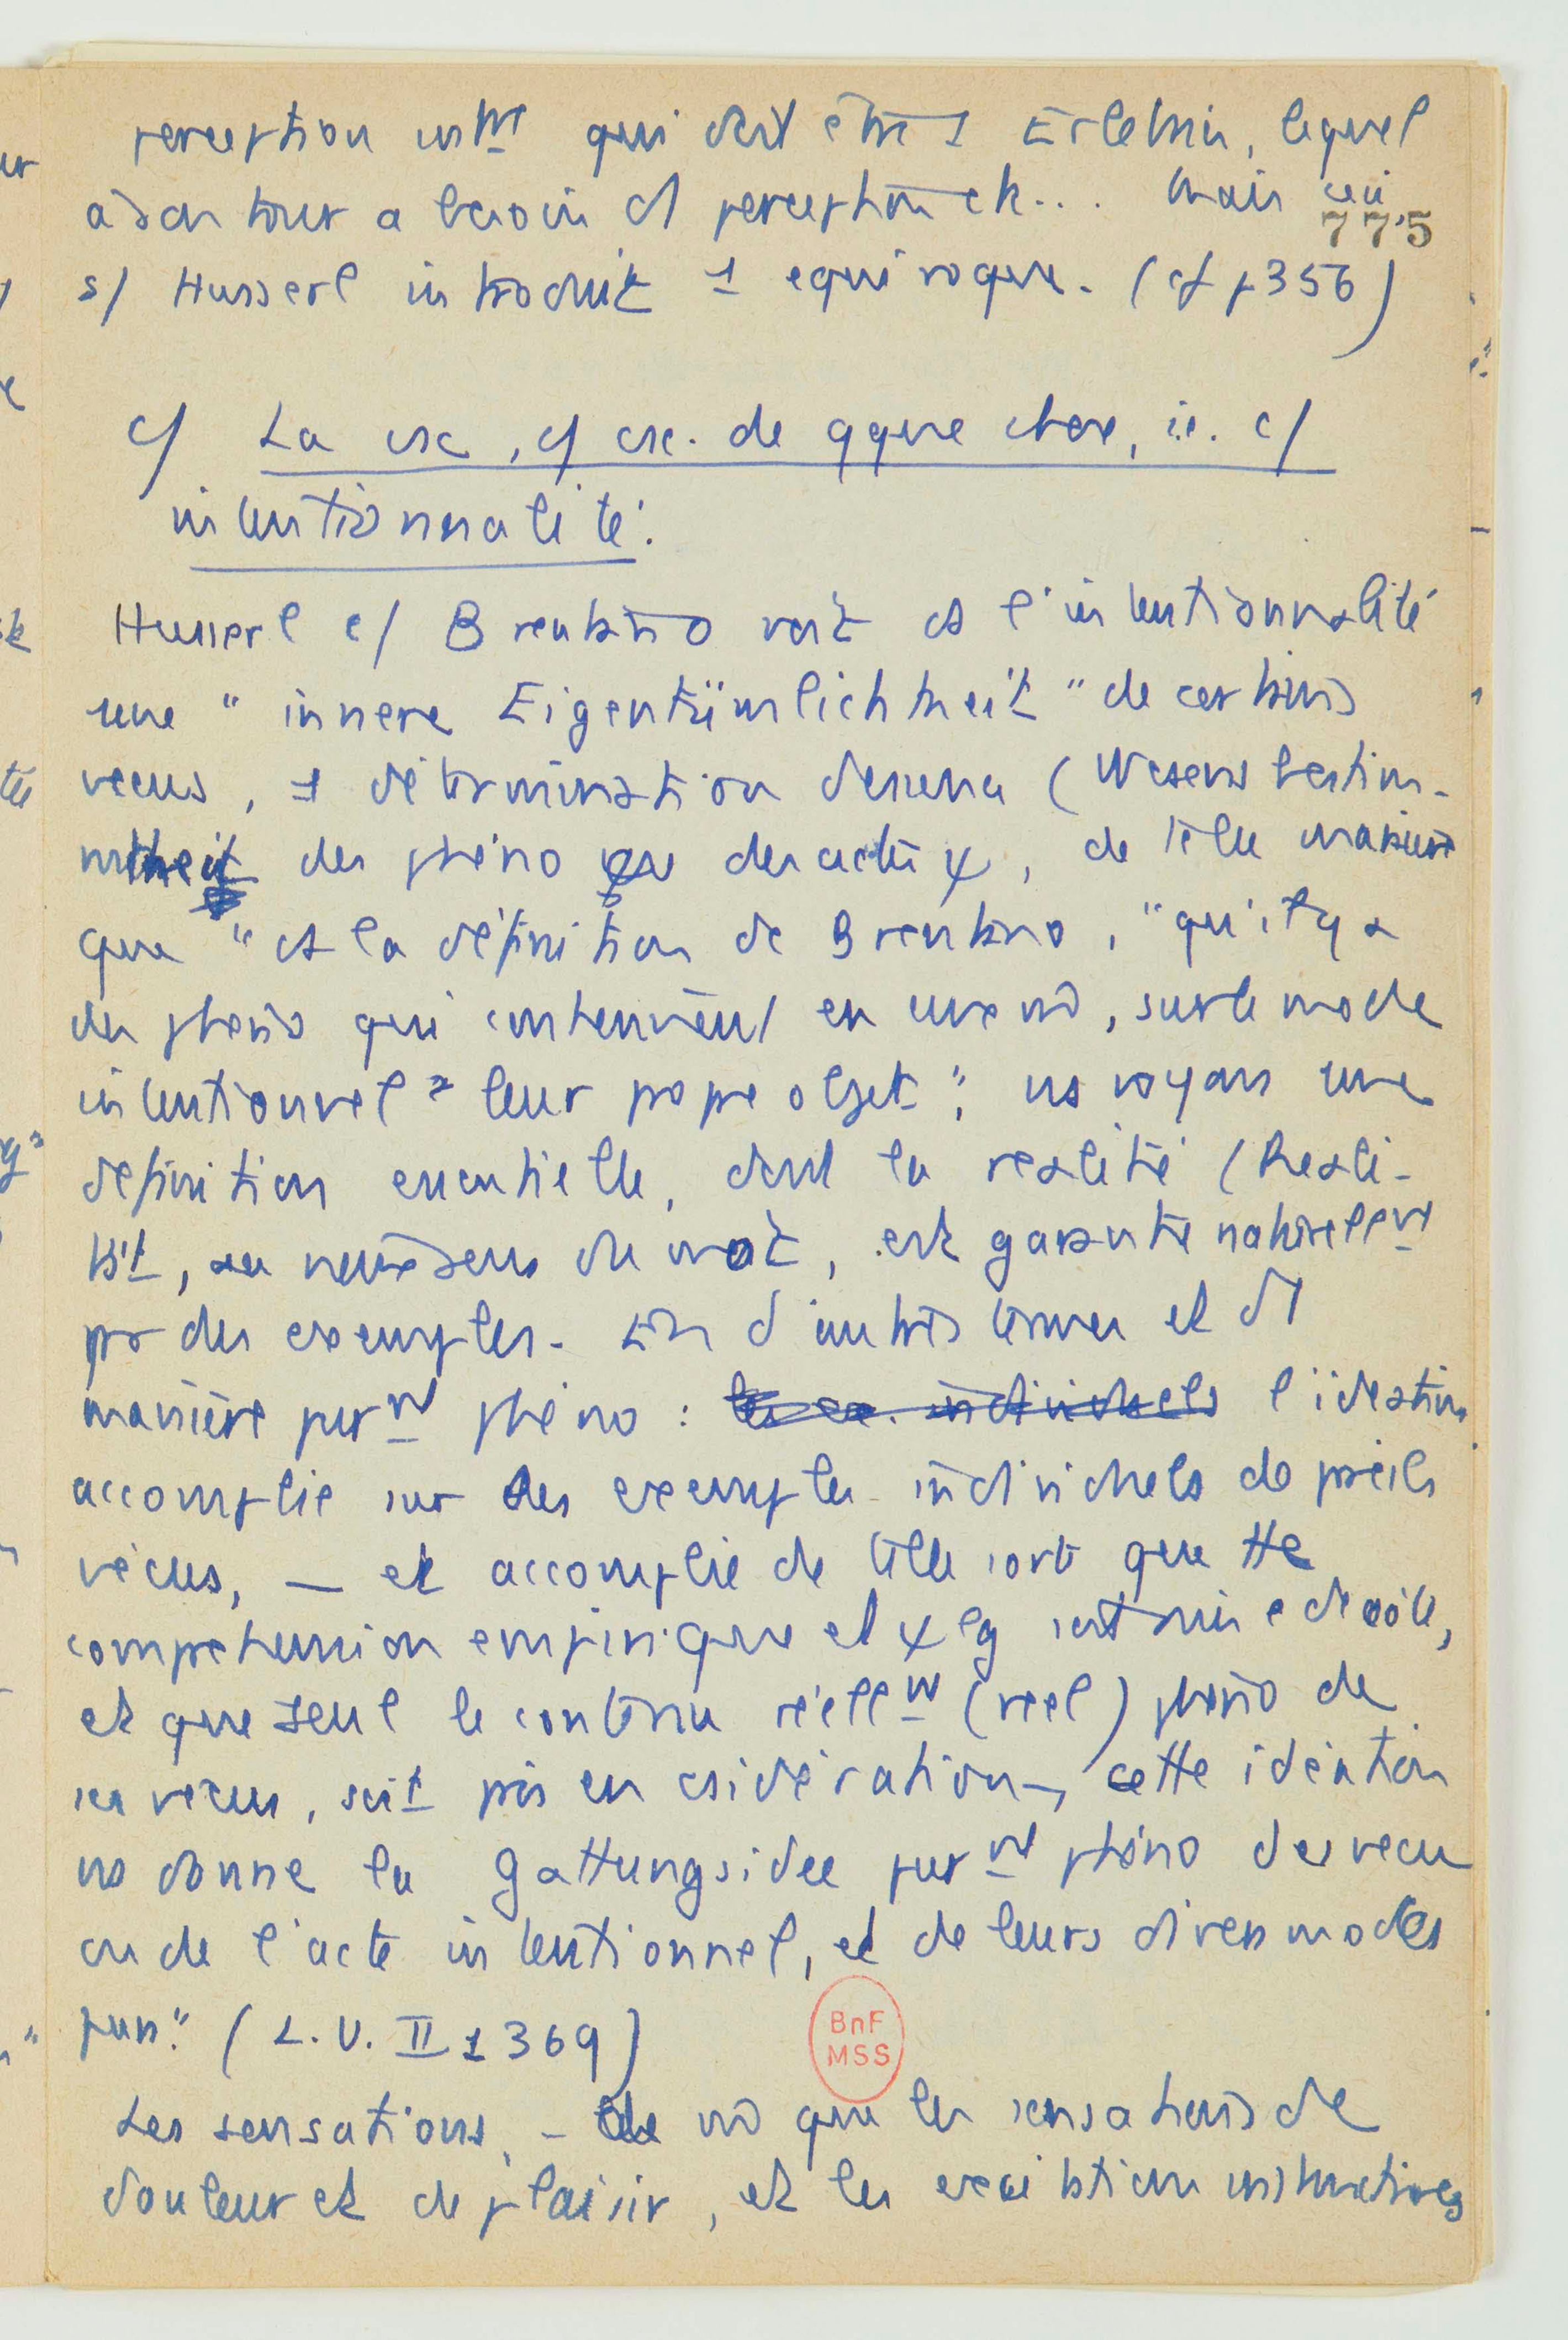 perception int^ne qui doit être 1 Erlebnis, lequel
à son tour a besoin d'1 perception etc... Mais ici
775
s/ Husserl introduit 1 equivoque. (cf p 356)
c/ La csc, c/ csc. de qque chose, i.e. c/
intentionnalité.
Husserl c/ Brentano voit ds l'intentionnalité
une "innere Eigentümlichkeit" de certains
vecus, 1 détermination d'essence (Wesensbestim-
mtheit des phéno ou des actes ψ, de telle manière
que "ds la définition de Brentano, "qu'il y a
des phéno qui contiennent en eux mm, sur le mode
intentionnel" leur propre objet", ns voyons une
définition essentielle, dont la realité (Reali-
tät, au vieux sens du mot, est garantie naturellem^t
par des exemples. En d'autres termes et d'1
manière purem^t phéno : les ex. individuels l'idéation
accomplie sur des exemples individuels de pareils
vécus, — et accomplie de telle sorte que tte
comprehension empirique et ψ lg soit mise de côté,
et que seul le contenu réellem^t (reel) phéno de
ces vécus, soit pris en csidération –, cette idéation
ns donne la Gattungsidee purem^t phéno des vecu
ou de l'acte intentionnel, et de leurs divers modes
purs." (L.U. II 1 369)
Les sensations, – de mm que les sensations de
douleur et de plaisir, et les excitations instinctives
BnF
MSS